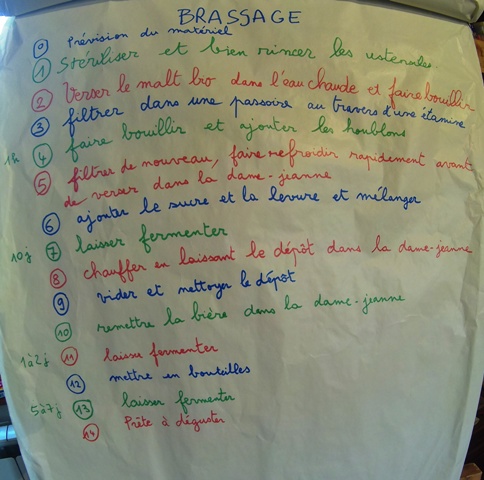 BRASSAGE
0 Prévision du matériel
1 Stériliser et bien rincer les ustensiles.
2 Verser le malt bio dans l'eau chaude et faire bouillir
3 filtrer dans une passoire au travers d'une étamine
1h 4 faire bouillir et ajouter les houblons
5 filtrer de nouveau, faire refroidir rapidement avant
de verser dans la dame-jeanne
6 ajouter le sucre et la levure et mélanger
10j 7 laisser fermenter
8 chauffer en laissant le dépôt dans la dame-jeanne
9 vider et nettoyer le dépôt
10 remettre la bière dans la dame-jeanne
1 à 2j 11 laisser fermenter
12 mettre en bouteilles
5 à 7j 13 laisser fermenter
14 Prête à déguster